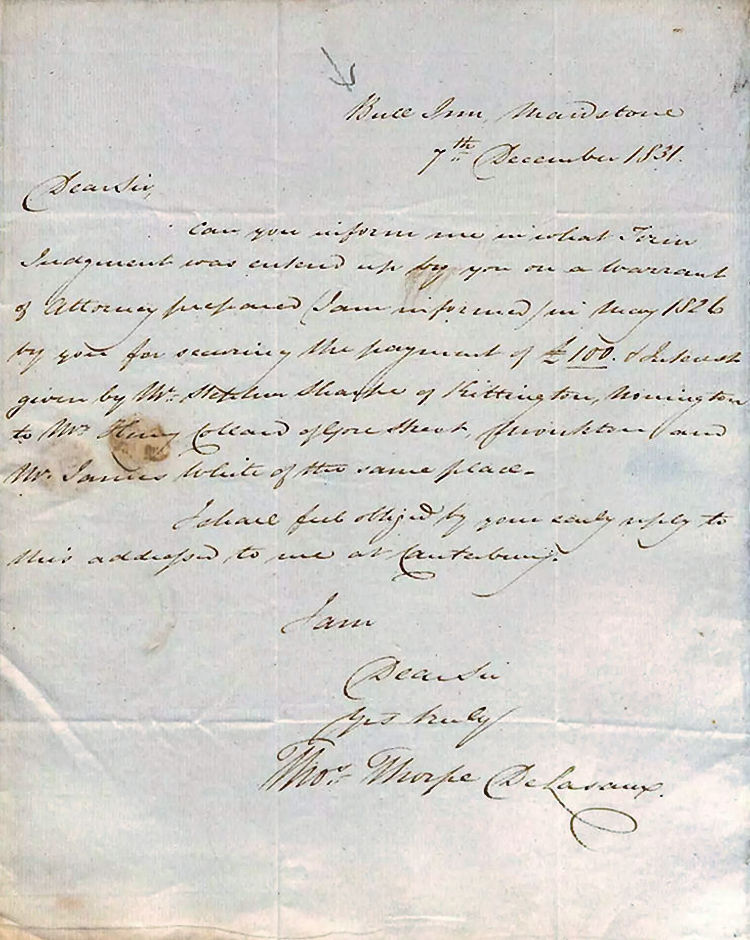 Bull Inn, Maidstone
7th December 1831.
Dear Sir,
Can you inform me in what Term
Judgment was entered up by you on a Warrant
of Attorney prepared (I am informed) in May 1826
by you for securing the payment of £100. & Interest
given by Mr. Stephen Sharpe of Kittington, Nonington
to Mr. Henry Collard of Gore Street, (Monkton) and
Mr. James White of the same place.
I shall feel obliged by your early reply to
this addressed to me at Canterbury.
I am
Dear Sir
Yrs truly
Thos. Thorpe DeLasaux.